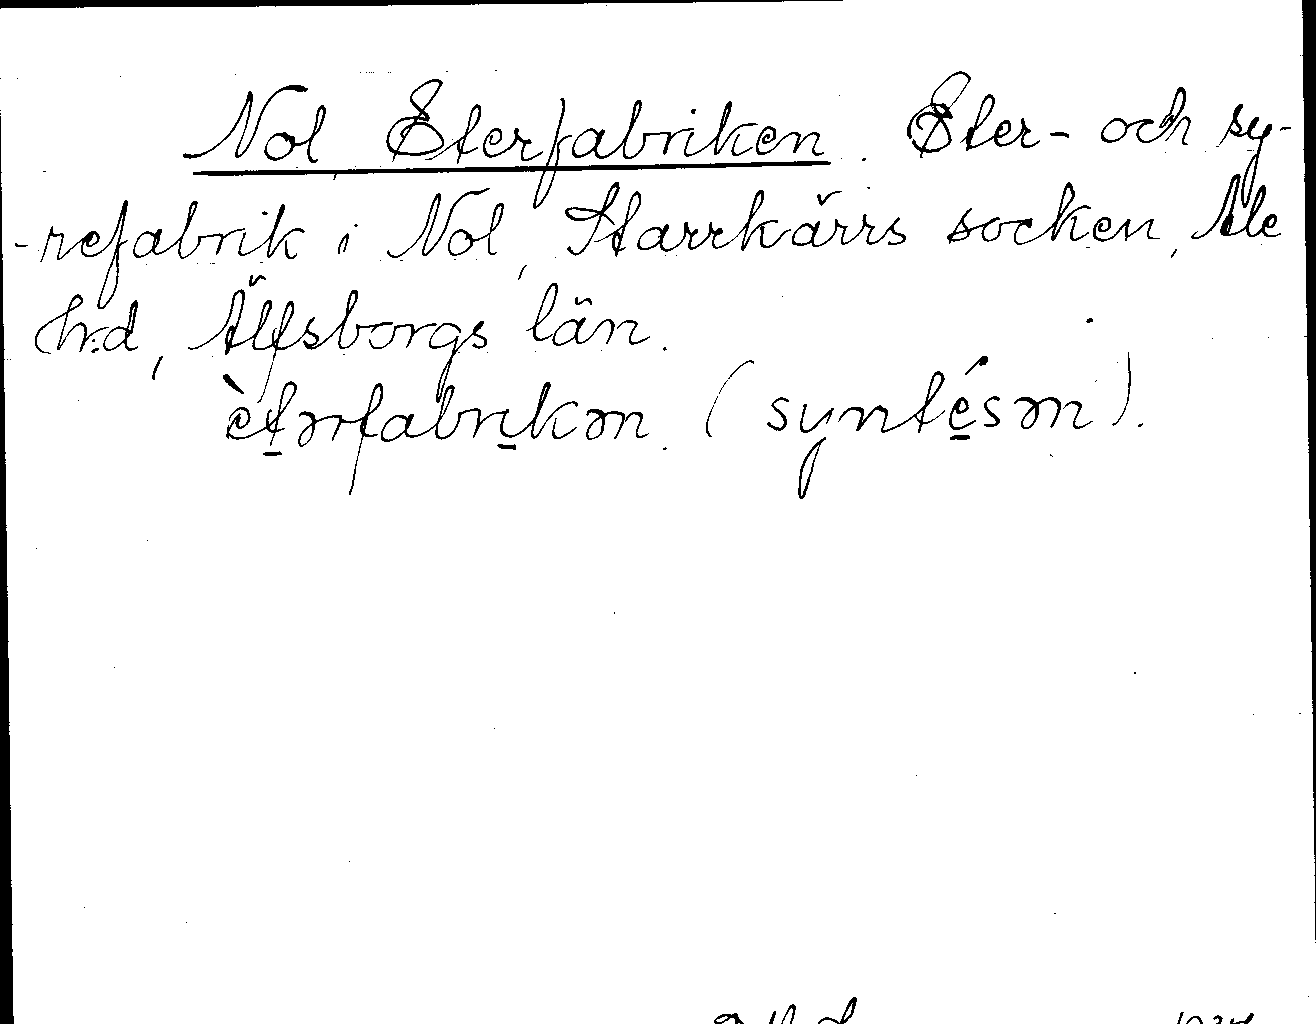 Nol Eterfabriken. Eter- och sy-
-refabrik i Nol, Starrkärrs socken, Ale
hd, Älfsborgs län.
ètərfabrikən. (syntésən).